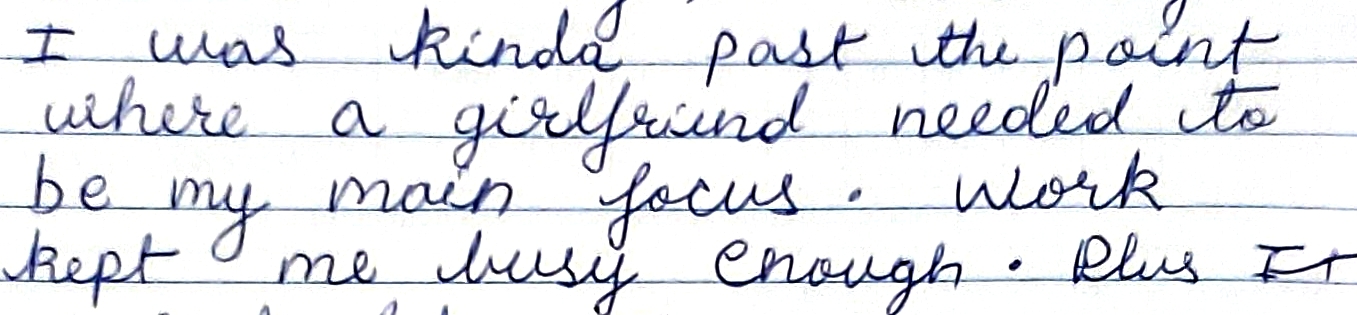 I was kinda past the point
where a girlfriend needed to
be my main focus. Work
kept me busy enough. Plus It